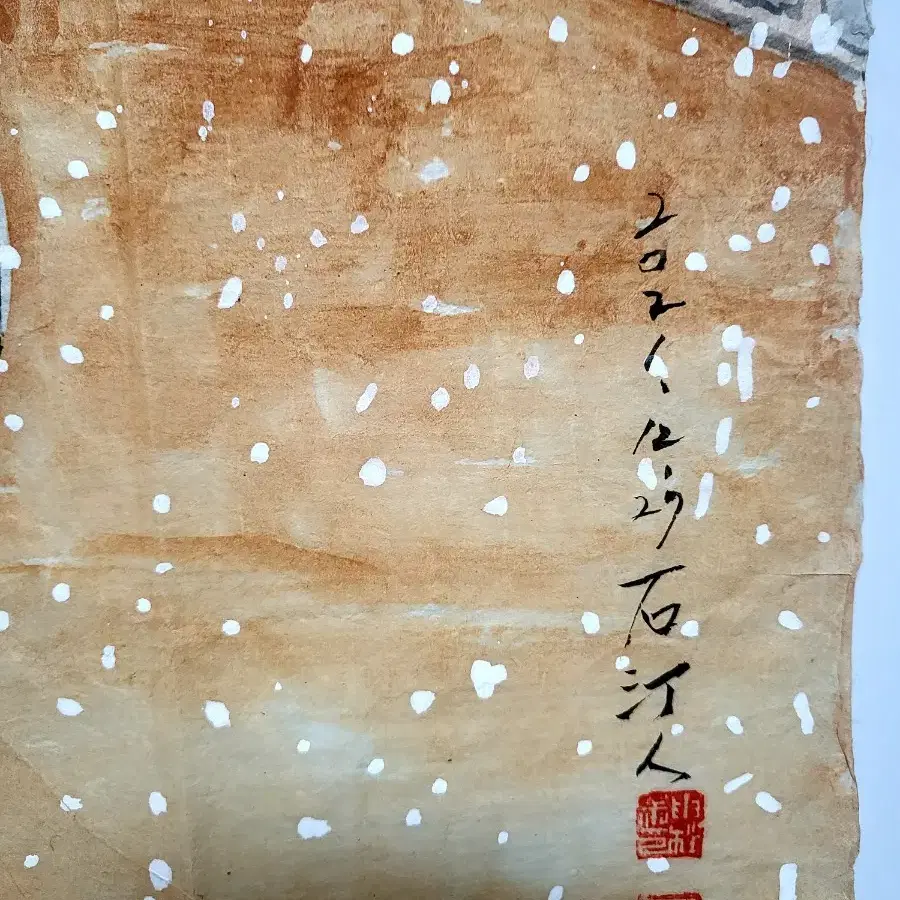 2021.12.29 石汀人